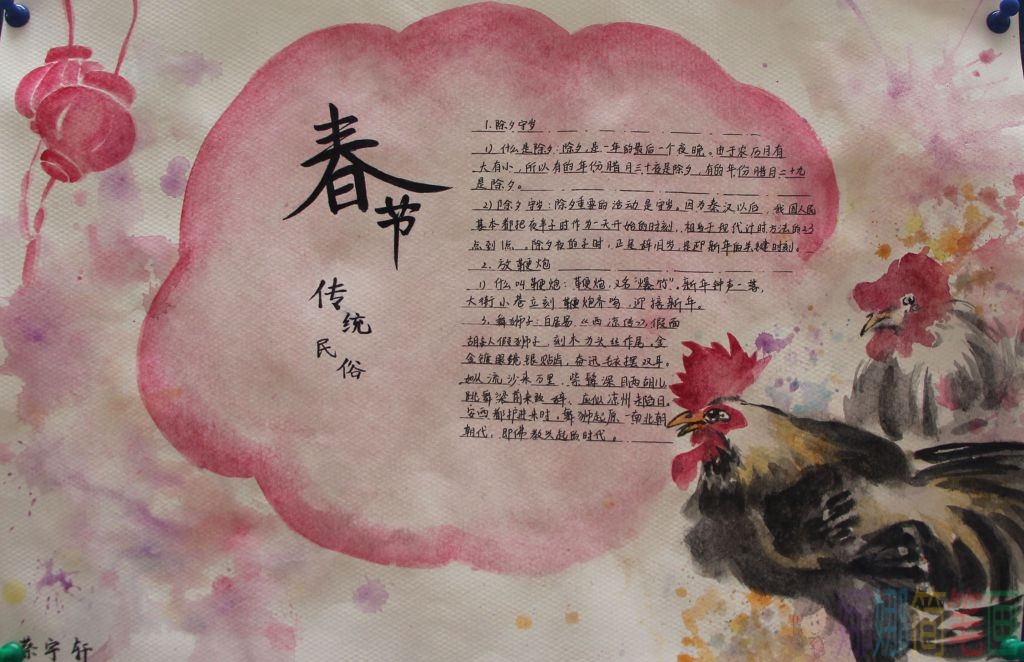 春节
传统
民俗
1.除夕守岁
1) 什么是除夕:除夕是一年的最后一个夜晚。由于农历月有
大有小,所以有的年份腊月三十夜是除夕,有的年份腊月二十九
是除夕。
2)除夕守岁:除夕重要的活动是守岁。因为秦汉以后,我国人民
基本都把夜半子时作为一天开始的时刻,相当于现代计时方法的23
点到1点。除夕夜的子时,正是辞旧岁,迎新年的关键时刻。
2.放鞭炮
1) 什么叫鞭炮:鞭炮,又名“爆竹”。新年钟声一落,
大街小巷立刻鞭炮齐鸣,迎接新年。
3.舞狮子:白居易《西凉伎》,假面
胡人假狮子,刻木为头丝作尾。金
金镀眼睛银贴齿,奋迅毛衣摆双耳。
如从流沙来万里,紫髯深目两胡儿,
跳舞梁前来致辞,应似凉州未陷日。
安西都护进来时。舞狮起原 南北朝
朝代,即佛教兴起的时代。
宇轩
简笔画